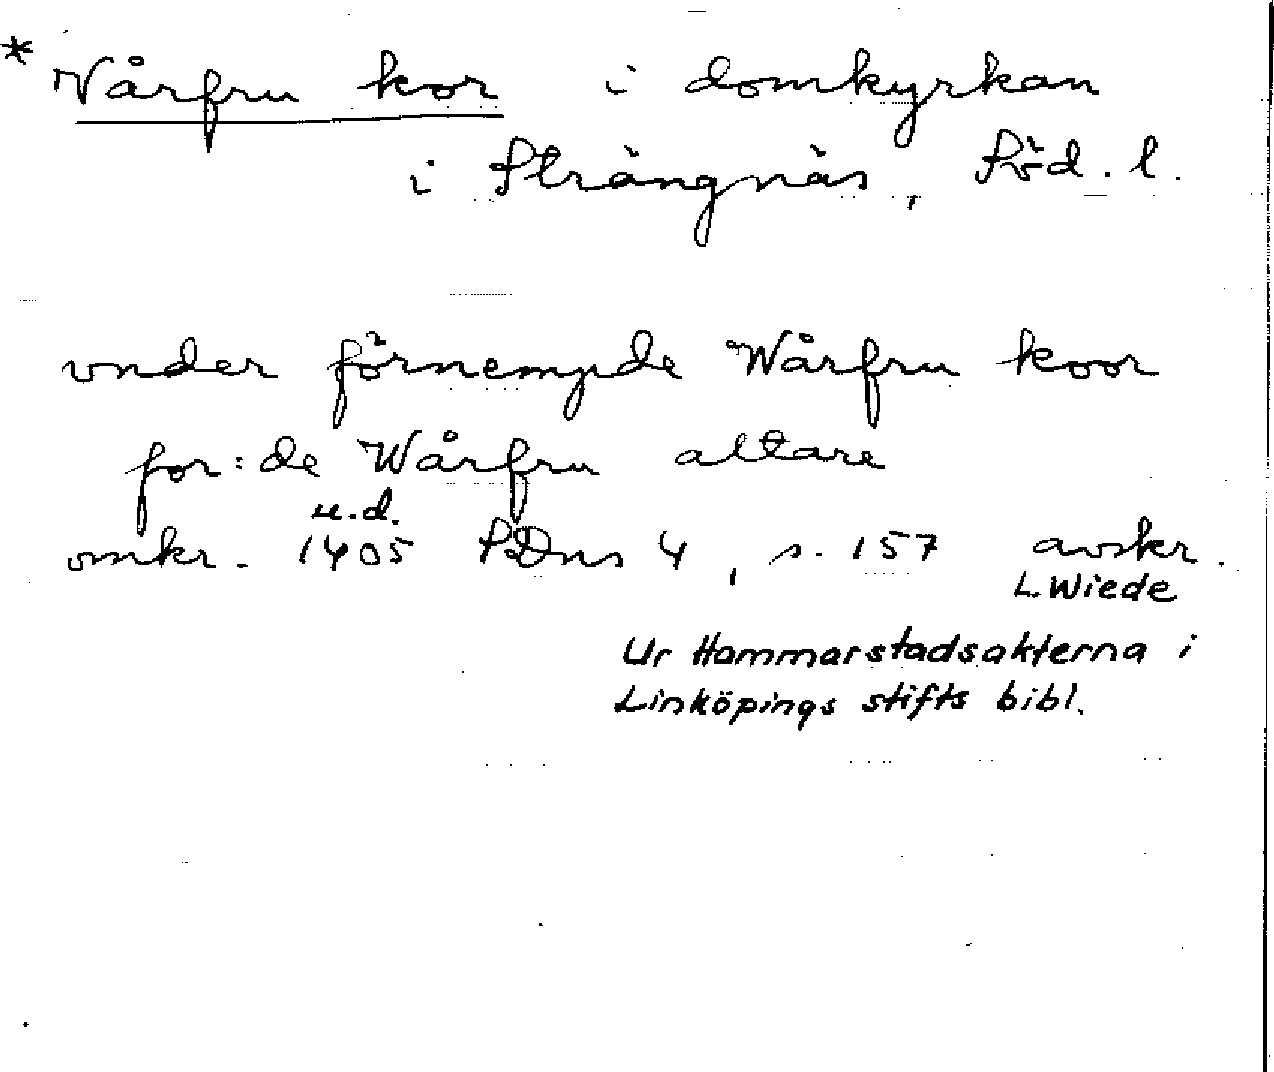 * Vårfru kor i domkyrkan
i Strängnäs, Söd. l.
vnder förnempde Wårfru koor
for:de Wårfru altare
u.d.
omkr. 1405 SDns 4, s. 157 avskr.
L. Wiede
Ur Hammarstadsakterna i
Linköpings stifts bibl.